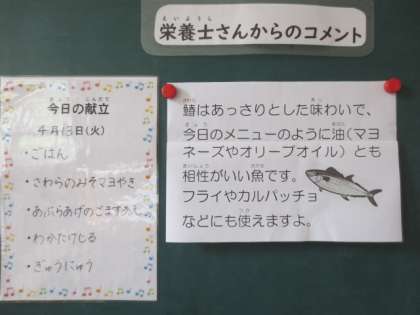 栄養士さんからのコメント
今日の献立
4月13日(火)
・ごはん
・さわらのみそマヨやき
・あぶらあげのごますあえ
・わかたけじる
・ぎゅうにゅう
鰆はあっさりとした味わいで、
今日のメニューのように油(マヨ
ネーズやオリーブオイル)とも
相性がいい魚です。
フライやカルパッチョ
などにも使えますよ。